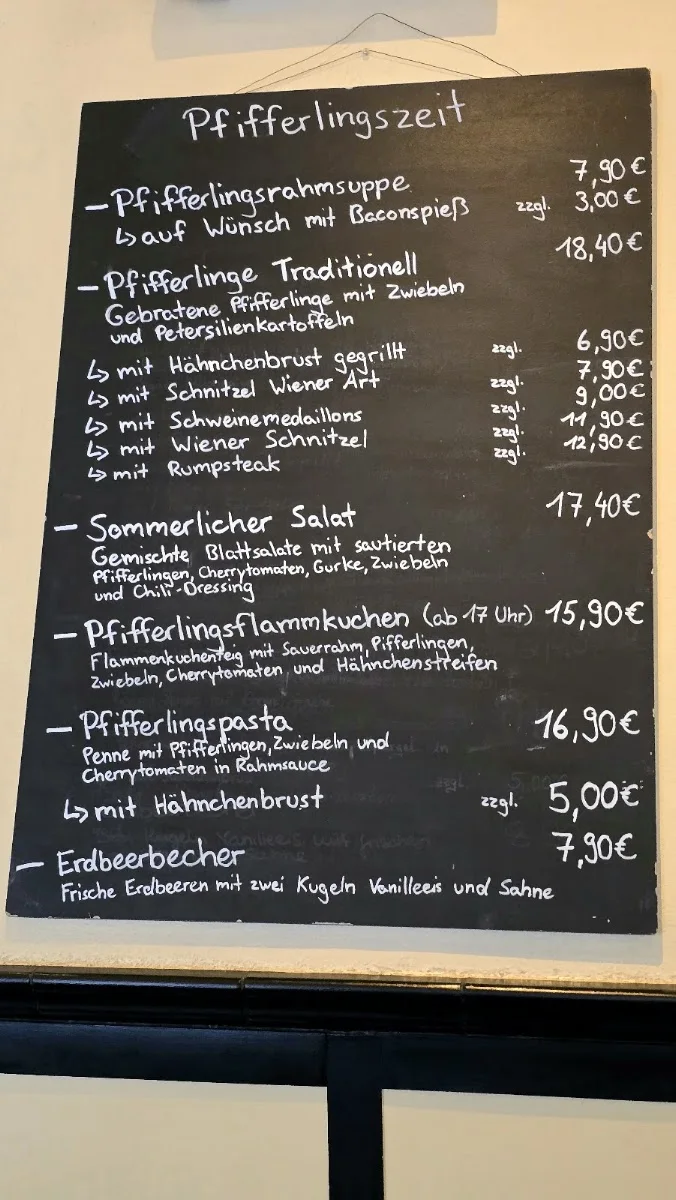 Pfifferlingszeit
– Pfifferlingsrahmsuppe 7,90€
↳ auf Wünsch mit Baconspieß zzgl. 3,00€
– Pfifferlinge Traditionell 18,40€
Gebratene Pfifferlinge mit Zwiebeln
und Petersilienkartoffeln
↳ mit Hähnchenbrust gegrillt zzgl. 6,90€
↳ mit Schnitzel Wiener Art zzgl. 7,90€
↳ mit Schweinemedaillons zzgl. 9,00€
↳ mit Wiener Schnitzel zzgl. 11,90€
↳ mit Rumpsteak zzgl. 12,90€
– Sommerlicher Salat 17,40€
Gemischte Blattsalate mit sautierten
Pfifferlingen, Cherrytomaten, Gurke, Zwiebeln
und Chili-Dressing
– Pfifferlingsflammkuchen (ab 17 Uhr) 15,90€
Flammenkuchenteig mit Sauerrahm, Pifferlingen,
Zwiebeln, Cherrytomaten und Hähnchenstreifen
– Pfifferlingspasta 16,90€
Penne mit Pfifferlingen, Zwiebeln und
Cherrytomaten in Rahmsauce
↳ mit Hähnchenbrust zzgl. 5,00€
– Erdbeerbecher 7,90€
Frische Erdbeeren mit zwei Kugeln Vanilleeis und Sahne